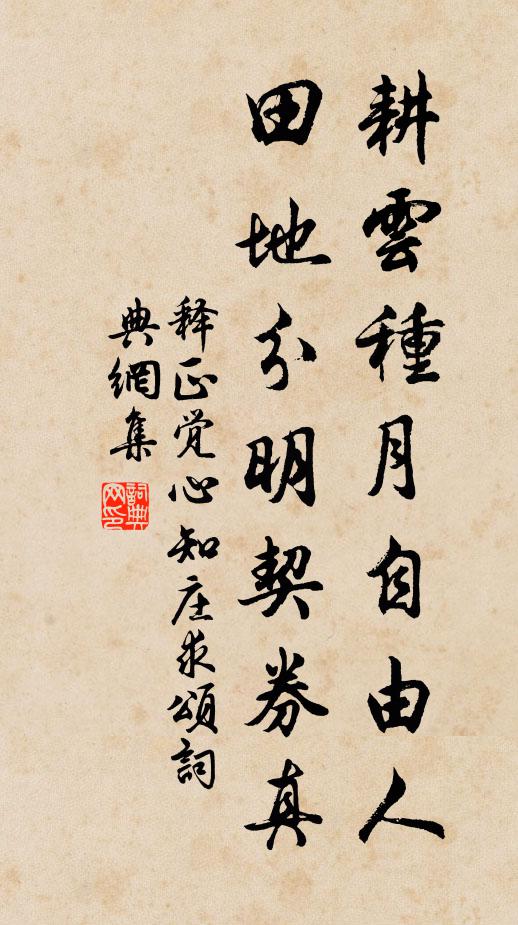 耕雲種月自由人
田地分明契券真
释正觉心知庄求頌詞
典網集
詞典
网印